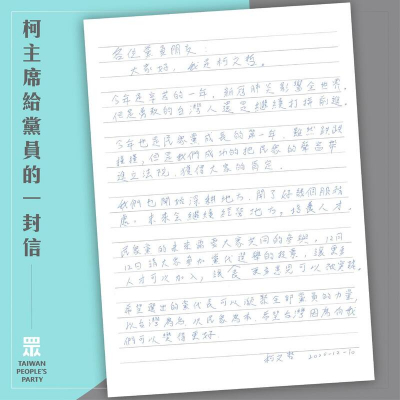 柯主席給黨員的一封信
眾
TAIWAN
PEOPLE'S
PARTY
各位黨員朋友:
大家好,我是柯文哲。
今年是辛苦的一年,新冠肺炎影響全世界。
但是勇敢的台灣人還是繼續打拼前進。
今年也是民眾黨成長的第一年,雖然缺點
種種,但是我們成功的把民眾的聲音帶
進立法院,獲得大家的肯定。
我們也開始深耕地方,開了好幾個服務
處。未來會繼續經營地方,培養人才。
民眾黨的未來需要大家共同的參與。12月
12日請大家參加黨代選舉的投票,讓更多
人才可以加入,讓
更多意見可以被聽見。
希望選出的黨代表可以凝聚全部黨員的力量,
以台灣為名,以民眾為本。希望台灣因為有我
們可以變得更好。
柯文哲 2020-12-10